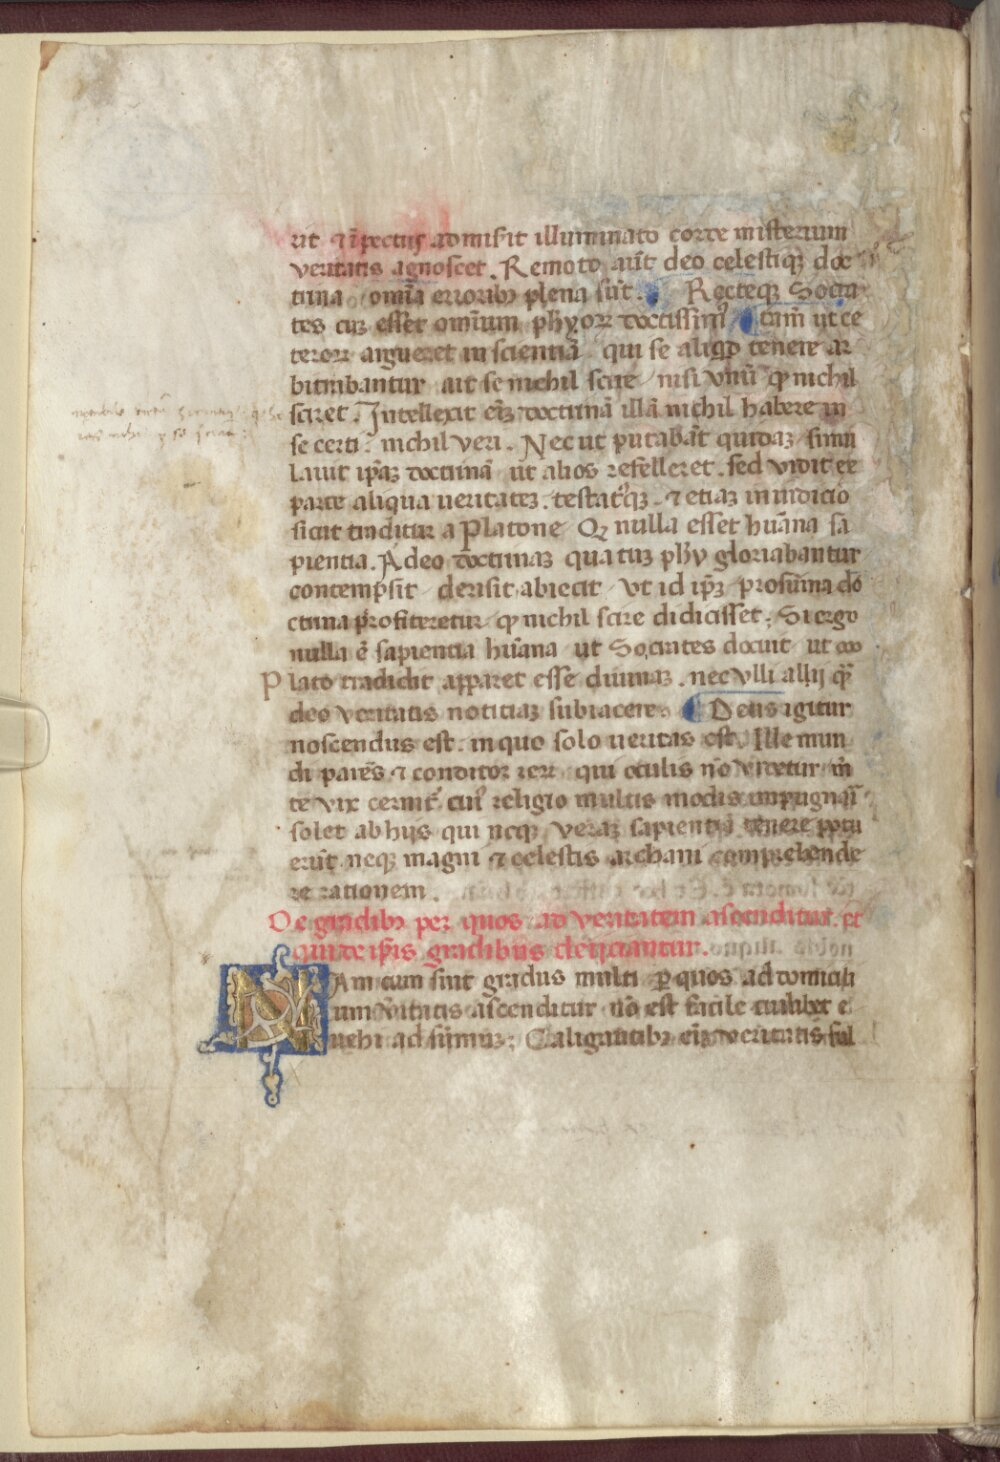 rit ⁊ ī pectus admisit illuminato corde misterium
veritatis agnoscet. Remoto aūt deo celestiq; doc
trina / omīa erroribꝫ plena sūt. Recteqꝫ Socra
tes cuꝫ esset omīum phỹoꝝ doctissimꝰ / tam̄ ut ce
teroꝝ argueret inscientiā / qui se aliqͥd tenere ar
bitrabantur / ait se nichil scire / nisi vnū ꝙ nichil
sciret. Intellexit em̄ doctrinā illā nichil habere in
se certi: nichil veri. Nec ut putabāt quidaꝫ / simu
lauit ip̄aꝫ doctrinā / ut alios refelleret. sed vidit ex
parte aliqua ueritateꝫ. testatꝰqꝫ. ⁊ etiaꝫ in iudicio
sicut traditur a Platone / Qꝫ nulla esset huāna sa
pientia. Adeo doctrinaꝫ qua tūc phỹ gloriabantur
contempsit / derisit, abiecit / vt id ip̄ꝫ pro sūma do
ctrina profiteretur / ꝙ nichil scire didicisset. Si ergo
nulla ē sapientia huāna ut Socrates docuit / ut
Plato tradidit apparet esse diuinaꝫ. nec vlli alij qͣꝫ
deo veritatis noticiaꝫ subiacere. Deus igitur
noscendus est. in quo solo ueritas est. Ille mun
di parēs ⁊ conditor reꝝ / qui oculis nō videtur / mē
te vix cernitͬ cuiꝰ religio multis modis impugnari
solet ab hijs qui neqꝫ veraꝫ sapientiā tenere potu
erūt. neqꝫ magni ⁊ celestis archani comprehende
re rationem.
De gradibꝫ per quos ad veritatem ascenditur. et
qui de ip̄is gradibus deijciantur.
NAm cum sint gradus multi ꝑ quos ad domicili
um v̄itatis ascenditur / nō est facile cuilibet e
uehi ad sūmuꝫ: Caligantibꝫ em̄ ueritatis ful